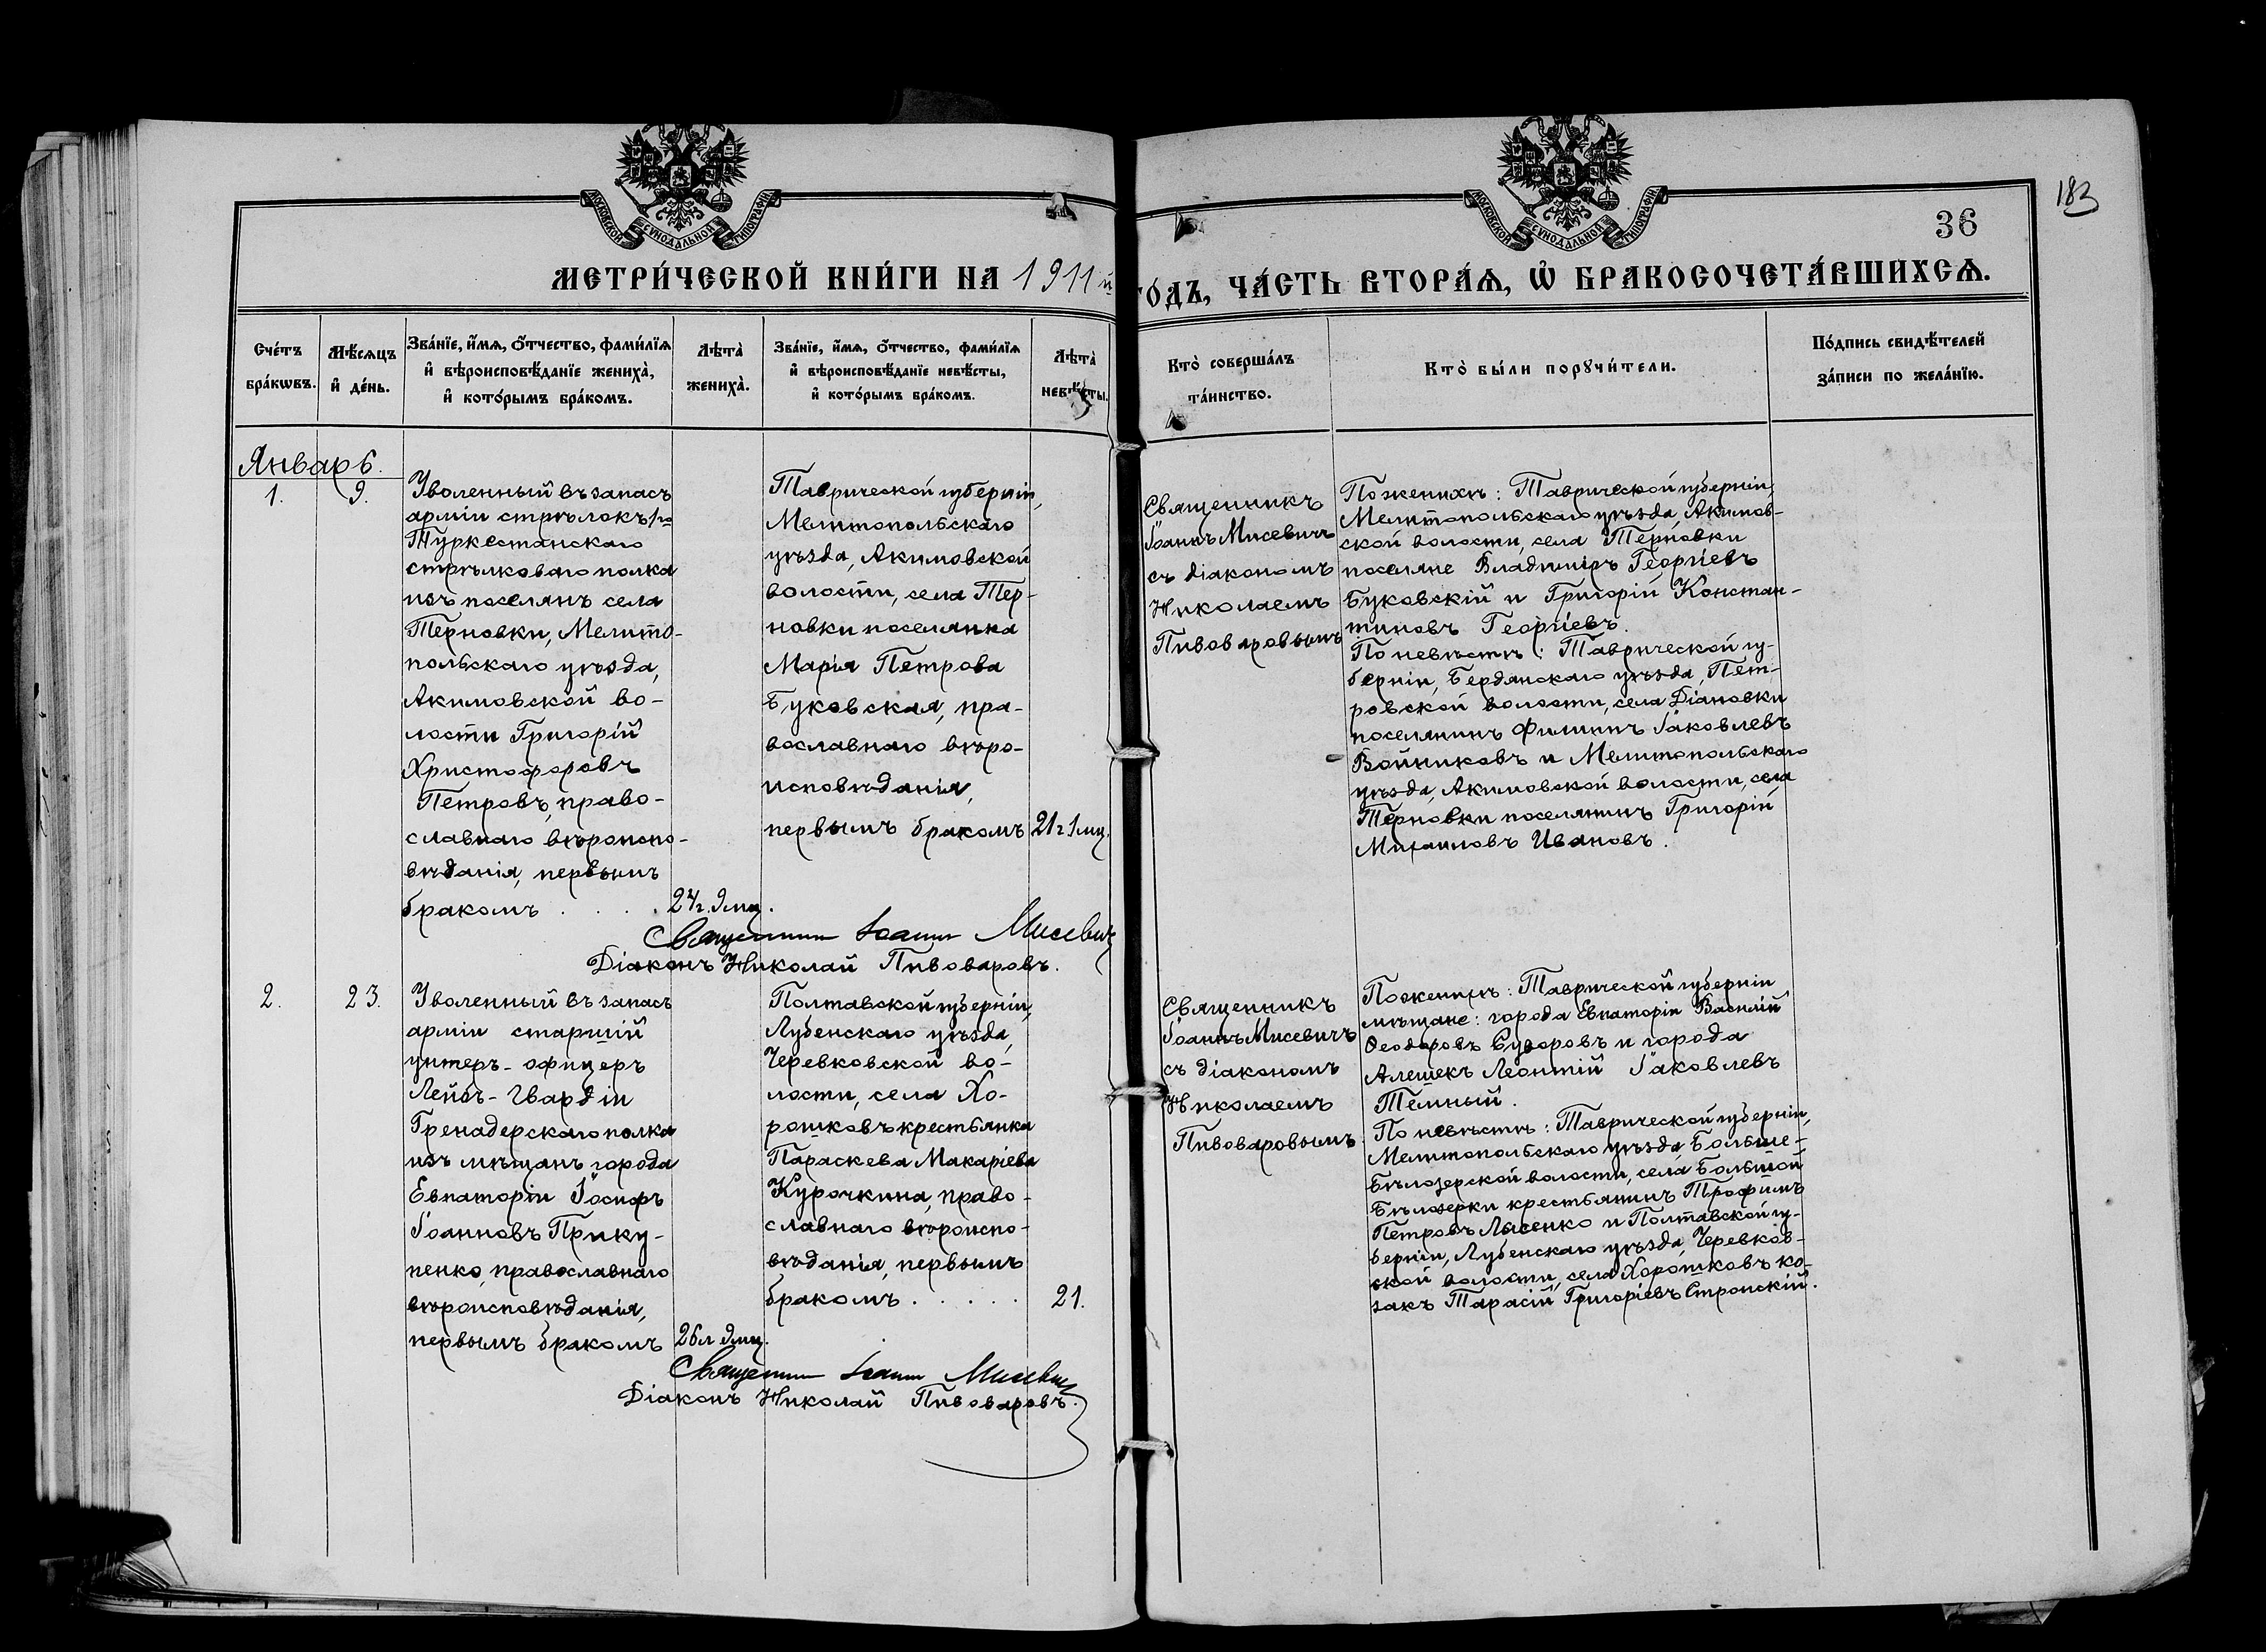 183
36
МОСКОВСКОЙ СѴНОДАЛЬНОЙ ТИПОГРАФІИ
МОСКОВСКОЙ СѴНОДАЛЬНОЙ ТИПОГРАФІИ
МЕТРИ́ЧЕСКОЙ КНИ́ГИ НА 1911 й
ГО́ДЪ, ЧА́СТЬ ВТОРА́Ѧ, Ѽ БРАКОСОЧЕТА́ВШИХСѦ.
Сче́тъ
бра́кѡвъ.
Мѣ́сѧцъ
и҆ де́нь.
Зва́нїе, и҆́мѧ, ѻ҆́тчество, фами́лїѧ
и҆ вѣроисповѣ́данїе жениха̀,
и҆ кото́рымъ бра́комъ.
Лѣта̀
жениха̀.
Зва́нїе, и҆́мѧ, ѻ҆́тчество, фами́лїѧ
и҆ вѣроисповѣ́данїе невѣ́сты,
и҆ кото́рымъ бра́комъ.
Лѣта̀
невѣ́сты.
Кто̀ соверша́лъ
та́инство.
Кто̀ бы́ли порꙋчи́тели.
По́дпись свидѣ́телей
за́писи по жела́нїю.
Январь.
1.
9.
Уволенный въ запасъ
арміи стрѣлокъ 1го
Туркестанскаго
стрѣлковаго полка
изъ поселянъ села
Терновки, Мелито-
польскаго уѣзда,
Акимовской во-
лости Григорій
Христофоровъ
Петровъ, право-
славнаго вѣроиспо-
вѣданія, первымъ
бракомъ . . . .
24г. 9мц.
Таврической губерніи,
Мелитопольскаго
уѣзда, Акимовской
волости, села Тер-
новки поселянка
Марія Петрова
Буковская, пра-
вославнаго вѣро-
исповѣданія,
первымъ бракомъ
21г 1мц.
Священникъ Іоаннъ Мисевичъ
Діаконъ Николай Пивоваровъ.
Священникъ
Іоаннъ Мисевичъ
съ діакономъ
Николаемъ
Пивоваровымъ
По женихѣ: Таврической губерніи,
Мелитопольскаго уѣзда, Акимов-
ской волости, села Терновки
поселяне Владиміръ Георгіевъ
Буковскій и Григорій Констан-
тиновъ Георгіевъ.
По невѣстѣ: Таврической гу-
берніи, Бердянскаго уѣзда, Пет-
ровской волости, села Діановки
поселянинъ Филиппъ Іаковлевъ
Войниковъ и Мелитопольскаго
уѣзда, Акимовской волости, села
Терновки поселянинъ Григорій
Михаиловъ Ивановъ.
2.
23.
Уволенный въ запасъ
арміи старшій
унтеръ-офицеръ
Лейбъ-Гвардіи
Гренадерскаго полка
изъ мѣщанъ города
Евпаторіи Іосифъ
Іоанновъ Прику-
пенко, православнаго
вѣроисповѣданія,
первымъ бракомъ
26л 9мц.
Полтавской губерніи,
Лубенскаго уѣзда,
Черевковской во-
лости, села Хо-
рошковъ крестьянка
Параскева Макаріева
Курочкина, право-
славнаго вѣроиспо-
вѣданія, первымъ
бракомъ . . . . .
21.
Священникъ Іоаннъ Мисевичъ
Діаконъ Николай Пивоваровъ.
Священникъ
Іоаннъ Мисевичъ
съ діакономъ
Николаемъ
Пивоваровымъ.
По женихѣ: Таврической губерніи
мѣщане: города Евпаторіи Василій
Ѳеодоровъ Суворовъ и города
Алешекъ Леонтій Іаковлевъ
Темный.
По невѣстѣ: Таврической губерніи,
Мелитопольскаго уѣзда, Больше-
Бѣлозерской волости, села Большой
Бѣлозерки крестьянинъ Трофимъ
Петровъ Лысенко и Полтавской гу-
берніи, Лубенскаго уѣзда, Черевков-
ской волости, села Хорошковъ ко-
закъ Тарасій Григоріевъ Стропскій.